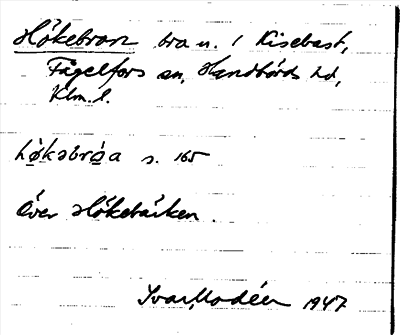 Hökebron bro n. / Kisebast,
Fågelfors sn, Handbörds hd,
Klm. l.
hø̀kəbrø̀a s. 165
Över Hökebäcken.
Ivar Modéer 1947